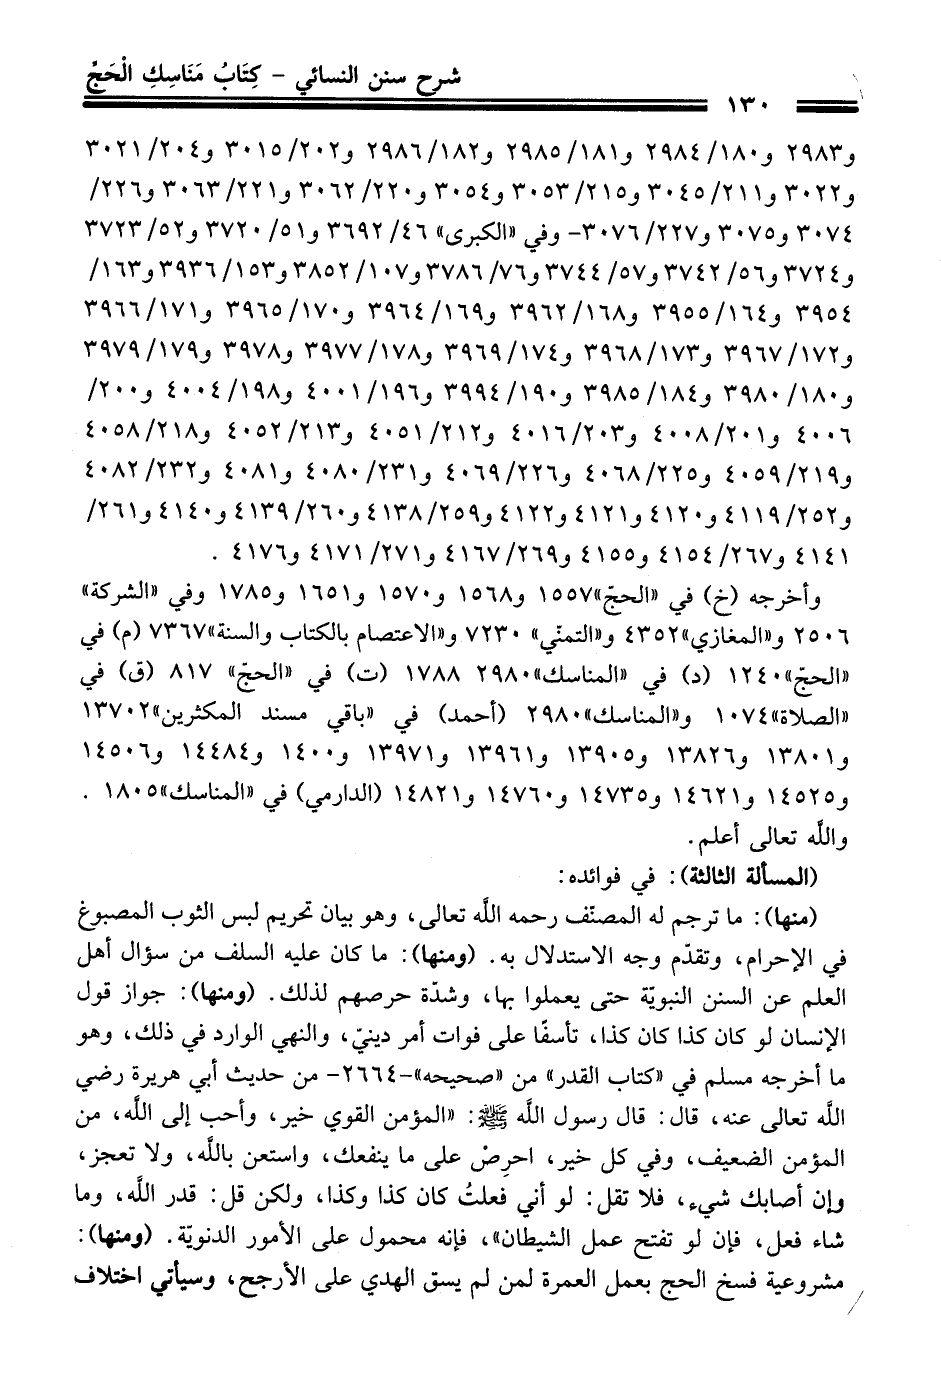 شرح سنن النسائي - كِتَابُ مَنَاسِكِ الْحَجِّ
١٣٠
و٢٩٨٣ و١٨٠/ ٢٩٨٤ و١٨١/ ٢٩٨٥ و١٨٢/ ٢٩٨٦ و٢٠٢/ ٣٠١٥ و٢٠٤/ ٣٠٢١
و٣٠٢٢ و٢١١/ ٣٠٤٥ و٢١٥/ ٣٠٥٣ و٣٠٥٤ و٢٢٠/ ٣٠٦٢ و٢٢١/ ٣٠٦٣ و٢٢٦/
٣٠٧٤ و٣٠٧٥ و٢٢٧/ ٣٠٧٦- وفي «الكبرى» ٤٦/ ٣٦٩٢ و٥١/ ٣٧٢٠ و٥٢/ ٣٧٢٣
و٣٧٢٤ و٥٦/ ٣٧٤٢ و٥٧/ ٣٧٤٤ و٧٦/ ٣٧٨٦ و١٠٧/ ٣٨٥٢ و١٥٣/ ٣٩٣٦ و١٦٣/
٣٩٥٤ و١٦٤/ ٣٩٥٥ و١٦٨/ ٣٩٦٢ و١٦٩/ ٣٩٦٤ و١٧٠/ ٣٩٦٥ و١٧١/ ٣٩٦٦
و١٧٢/ ٣٩٦٧ و١٧٣/ ٣٩٦٨ و١٧٤/ ٣٩٦٩ و١٧٨/ ٣٩٧٧ و٣٩٧٨ و١٧٩/ ٣٩٧٩
و١٨٠/ ٣٩٨٠ و١٨٤/ ٣٩٨٥ و١٩٠/ ٣٩٩٤ و١٩٦/ ٤٠٠١ و١٩٨/ ٤٠٠٤ و٢٠٠/
٤٠٠٦ و٢٠١/ ٤٠٠٨ و٢٠٣/ ٤٠١٦ و٢١٢/ ٤٠٥١ و٢١٣/ ٤٠٥٢ و٢١٨/ ٤٠٥٨
و٢١٩/ ٤٠٥٩ و٢٢٥/ ٤٠٦٨ و٢٢٦/ ٤٠٦٩ و٢٣١/ ٤٠٨٠ و٤٠٨١ و٢٣٢/ ٤٠٨٢
و٢٥٢/ ٤١١٩ و٤١٢٠ و٤١٢١ و٤١٢٢ و٢٥٩/ ٤١٣٨ و٢٦٠/ ٤١٣٩ و٤١٤٠ و٢٦١/
٤١٤١ و٢٦٧/ ٤١٥٤ و٤١٥٥ و٢٦٩/ ٤١٦٧ و٢٧١/ ٤١٧١ و٤١٧٦ .
وأخرجه (خ) في «الحجّ»١٥٥٧ و١٥٦٨ و١٥٧٠ و١٦٥١ و١٧٨٥ وفي «الشركة»
٢٥٠٦ و«المغازي»٤٣٥٢ و«التمنّي» ٧٢٣٠ و«الاعتصام بالكتاب والسنة»٧٣٦٧ (م) في
«الحجّ»١٢٤٠ (د) في «المناسك»٢٩٨٠ ١٧٨٨ (ت) في «الحجّ» ٨١٧ (ق) في
«الصلاة»١٠٧٤ و«المناسك»٢٩٨٠ (أحمد) في «باقي مسند المكثرين»١٣٧٠٢
و١٣٨٠١ و١٣٨٢٦ و١٣٩٠٥ و١٣٩٦١ و١٣٩٧١ و١٤٠٠ و١٤٤٨٤ و١٤٥٠٦
و١٤٥٢٥ و١٤٦٢١ و١٤٧٣٥ و١٤٧٦٠ و١٤٨٢١ (الدارمي) في «المناسك»١٨٠٥ .
واللَّه تعالى أعلم.
(المسألة الثالثة): في فوائده:
(منها): ما ترجم له المصنّف رحمه اللَّه تعالى، وهو بيان تحريم لبس الثوب المصبوغ
في الإحرام، وتقدّم وجه الاستدلال به. (ومنها): ما كان عليه السلف من سؤال أهل
العلم عن السنن النبويّة حتى يعملوا بها، وشدّة حرصهم لذلك. (ومنها): جواز قول
الإنسان لو كان كذا كان كذا، تأسفًا على فوات أمر دينيّ، والنهي الوارد في ذلك، وهو
ما أخرجه مسلم في «كتاب القدر» من «صحيحه»-٢٦٦٤- من حديث أبي هريرة رضي
اللَّه تعالى عنه، قال: قال رسول اللَّه ﷺ: «المؤمن القوي خير، وأحب إلى اللَّه، من
المؤمن الضعيف، وفي كل خير، احرِصْ على ما ينفعك، واستعن باللَّه، ولا تعجز،
وإن أصابك شيء، فلا تقل: لو أني فعلتُ كان كذا وكذا، ولكن قل: قدر اللَّه، وما
شاء فعل، فإن لو تفتح عمل الشيطان»، فإنه محمول على الأمور الدنويّة. (ومنها):
مشروعية فسخ الحج بعمل العمرة لمن لم يسق الهدي على الأرجح، وسيأتي اختلاف